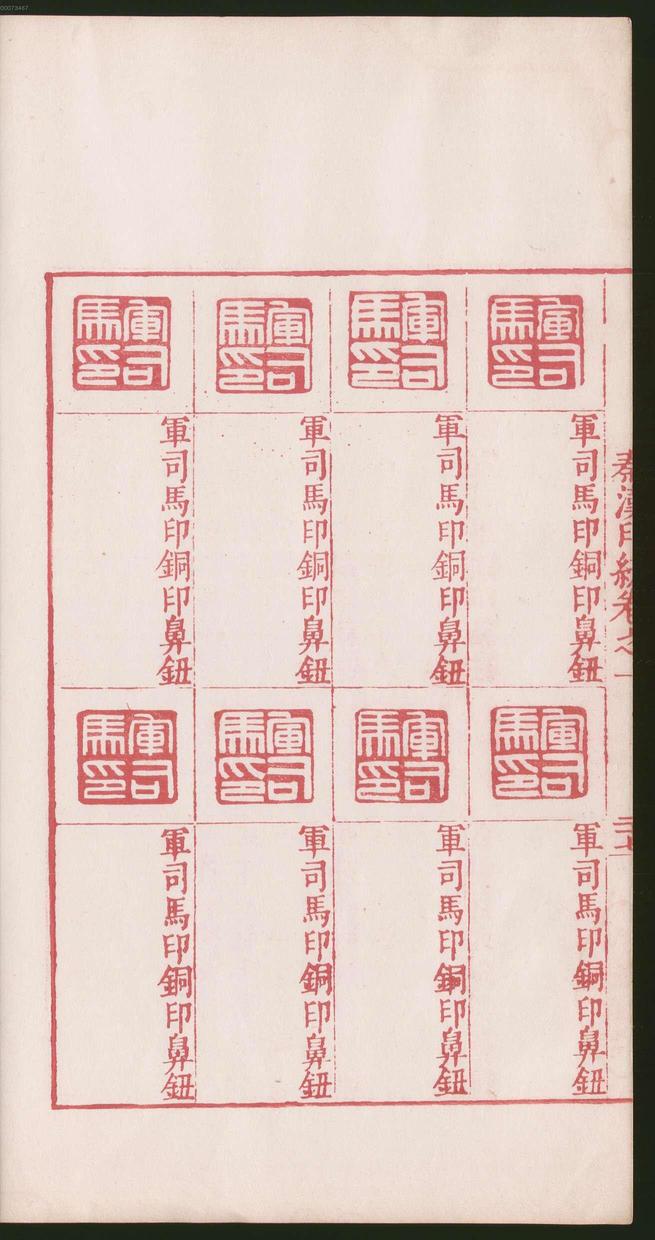 00073467
秦漢印統卷之一
軍司馬印
軍司馬印銅印鼻鈕
軍司馬印
軍司馬印銅印鼻鈕
軍司馬印
軍司馬印銅印鼻鈕
軍司馬印
軍司馬印銅印鼻鈕
軍司馬印
軍司馬印銅印鼻鈕
軍司馬印
軍司馬印銅印鼻鈕
軍司馬印
軍司馬印銅印鼻鈕
軍司馬印
軍司馬印銅印鼻鈕